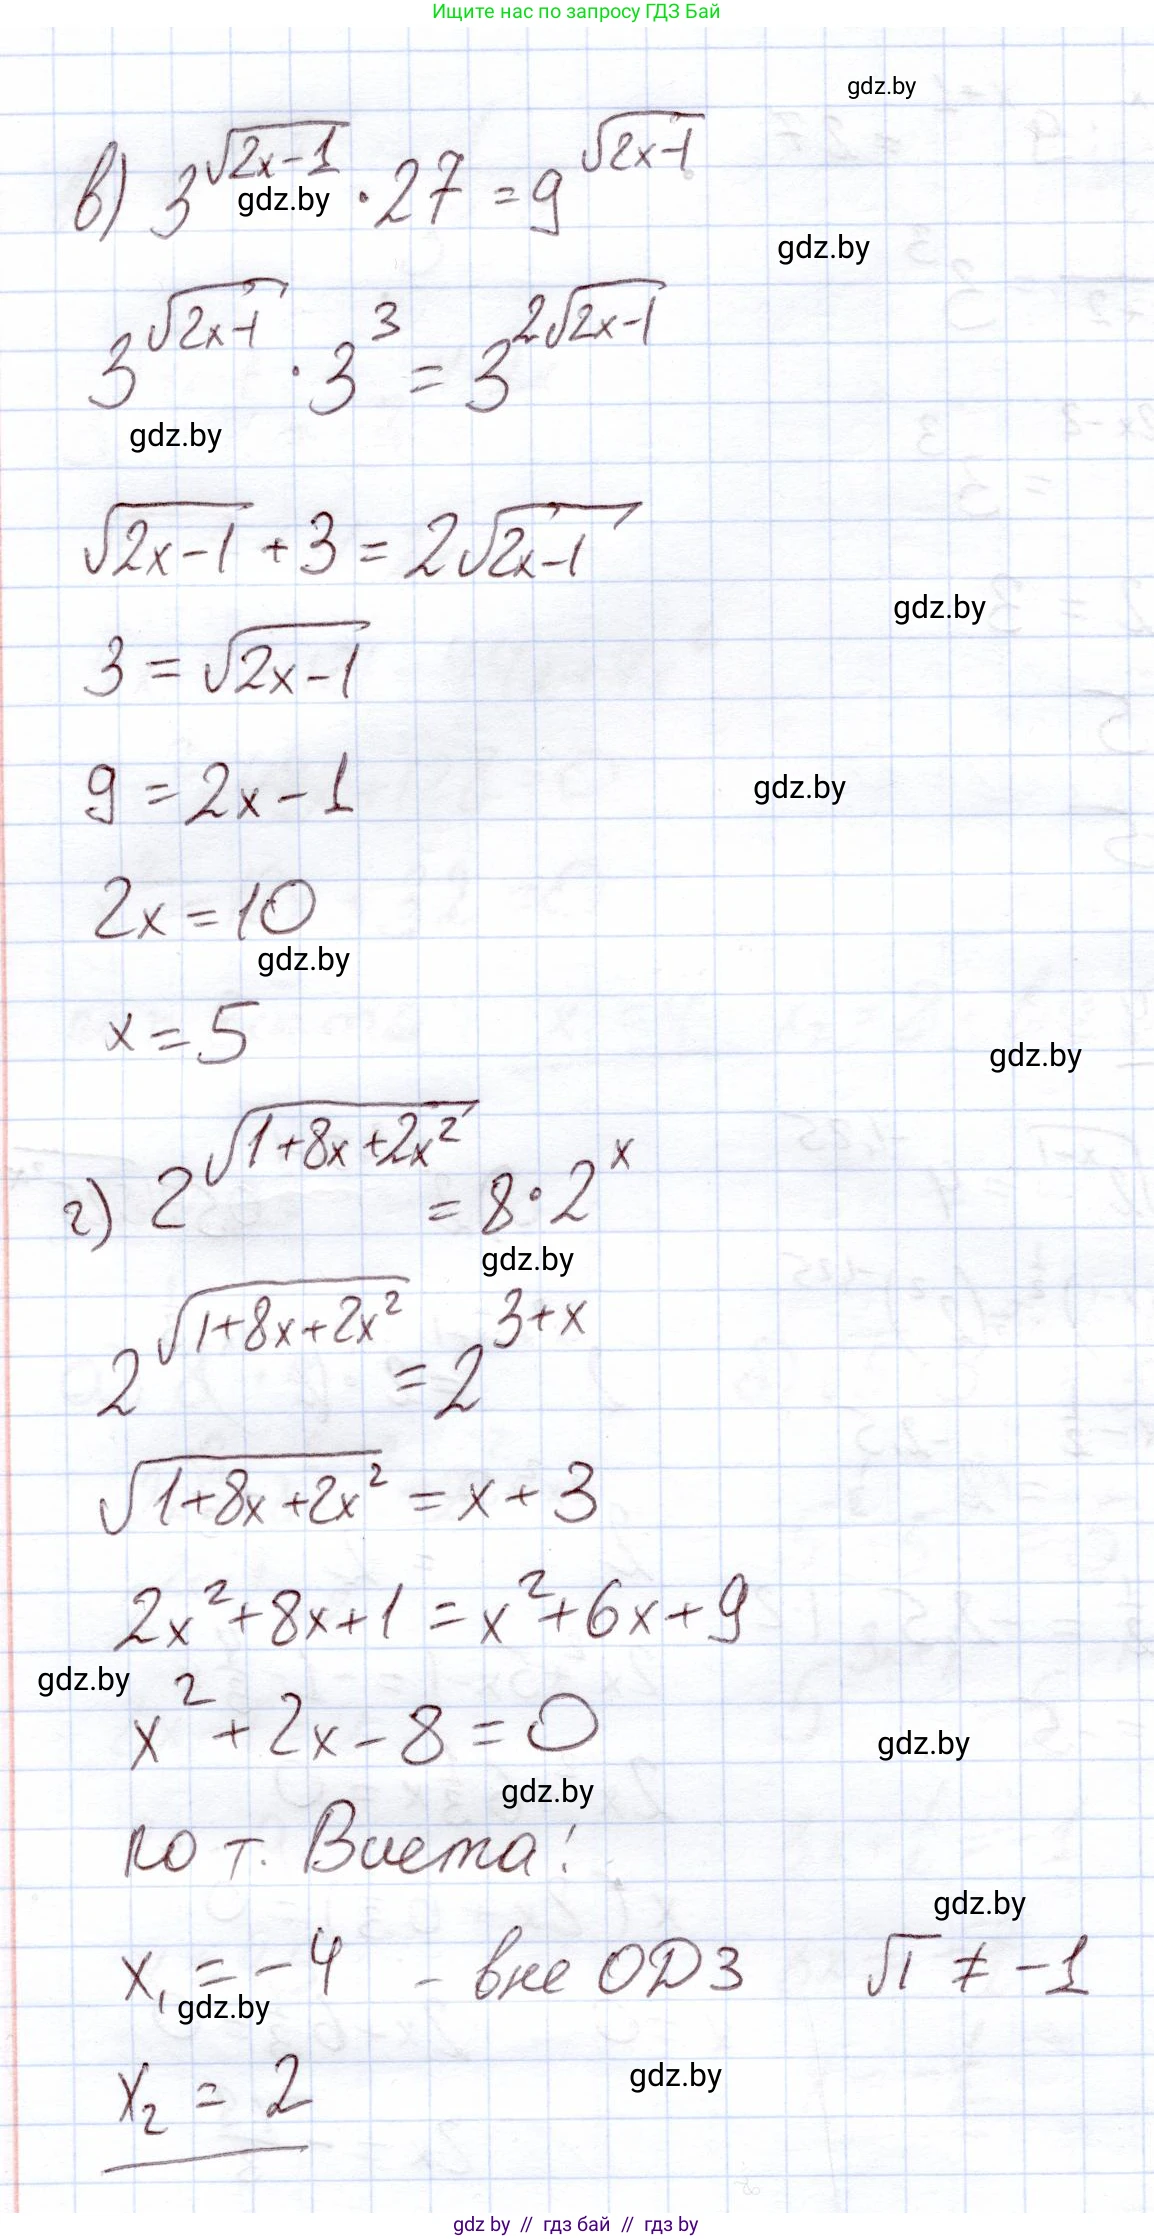 Ищите нас по запросу ГДЗ Бай
gdz.by
в) 3^√(2x-1) · 27 = 9^√(2x-1)
gdz.by
gdz.by
3^√(2x-1) · 3^3 = 3^(2√(2x-1))
gdz.by
√(2x-1) + 3 = 2√(2x-1)
gdz.by
3 = √(2x-1)
gdz.by
9 = 2x - 1
2x = 10
gdz.by
x = 5
gdz.by
г) 2^√(1+8x+2x²) = 8 · 2^x
gdz.by
2^√(1+8x+2x²) = 2^(3+x)
√(1+8x+2x²) = x + 3
2x² + 8x + 1 = x² + 6x + 9
gdz.by
x² + 2x - 8 = 0
gdz.by
gdz.by
по т. Виета:
gdz.by
x₁ = -4 - вне ОДЗ √1 ≠ -1
gdz.by
gdz.by
x₂ = 2
gdz.by // гдз бай // гдз by